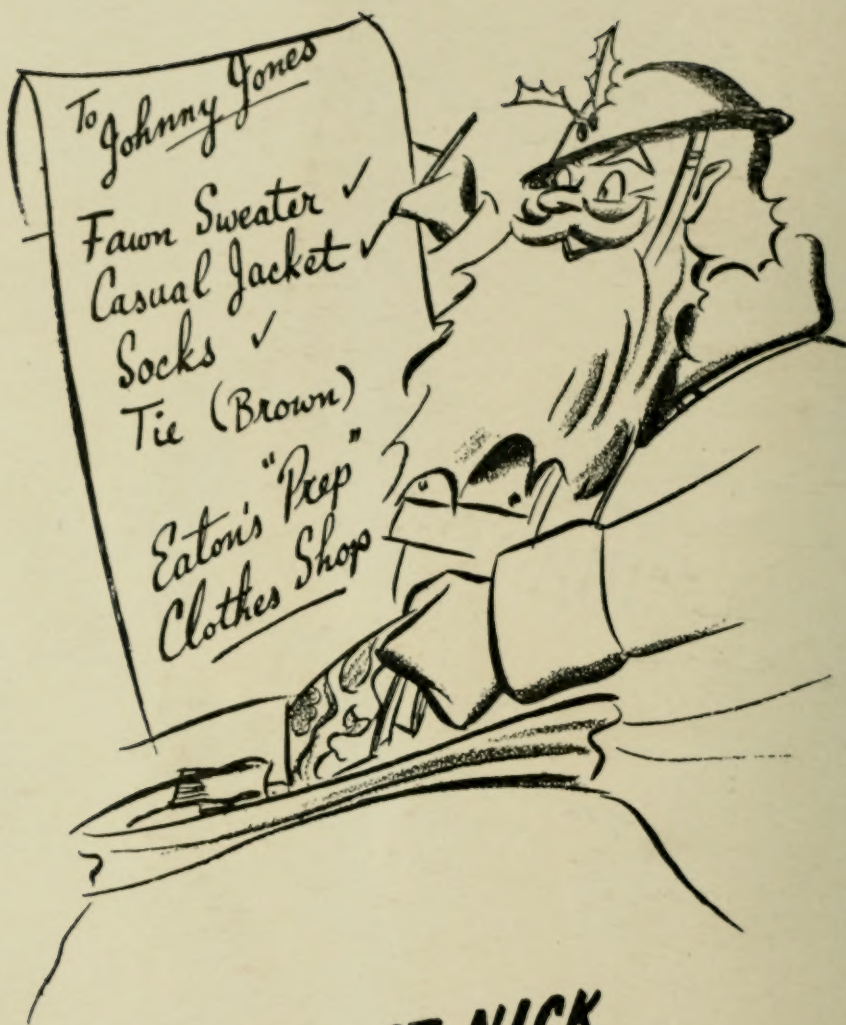 To
Johnny Jones
Fawn Sweater ✓
Casual Jacket ✓
Socks ✓
Tie (Brown)
"Prep"
Eaton's
Clothes Shop
ST. NICK